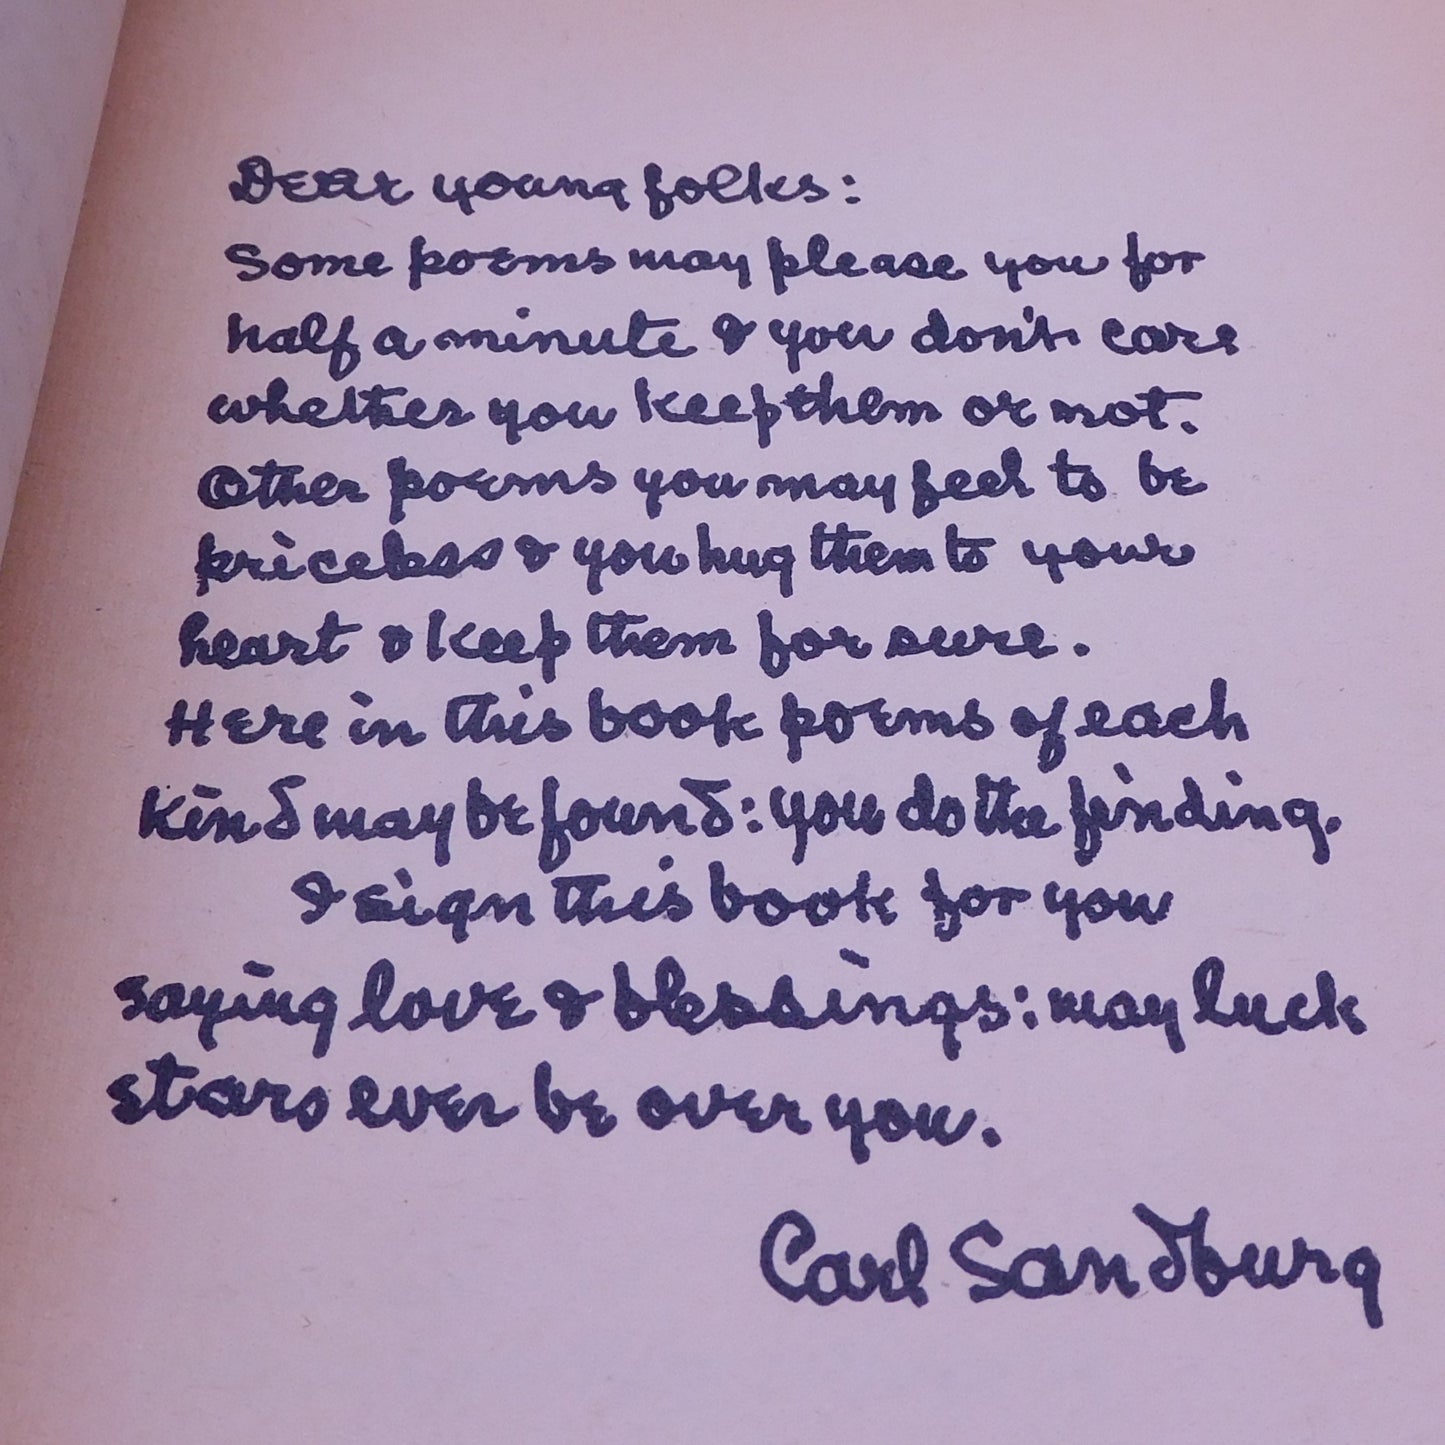 Dear young folks:
Some poems may please you for
half a minute & you don't care
whether you keep them or not.
Other poems you may feel to be
priceless & you hug them to your
heart & keep them for sure.
Here in this book poems of each
kind may be found: you do the finding.
I sign this book for you
saying love & blessings: may luck
stars ever be over you.
Carl Sandburg